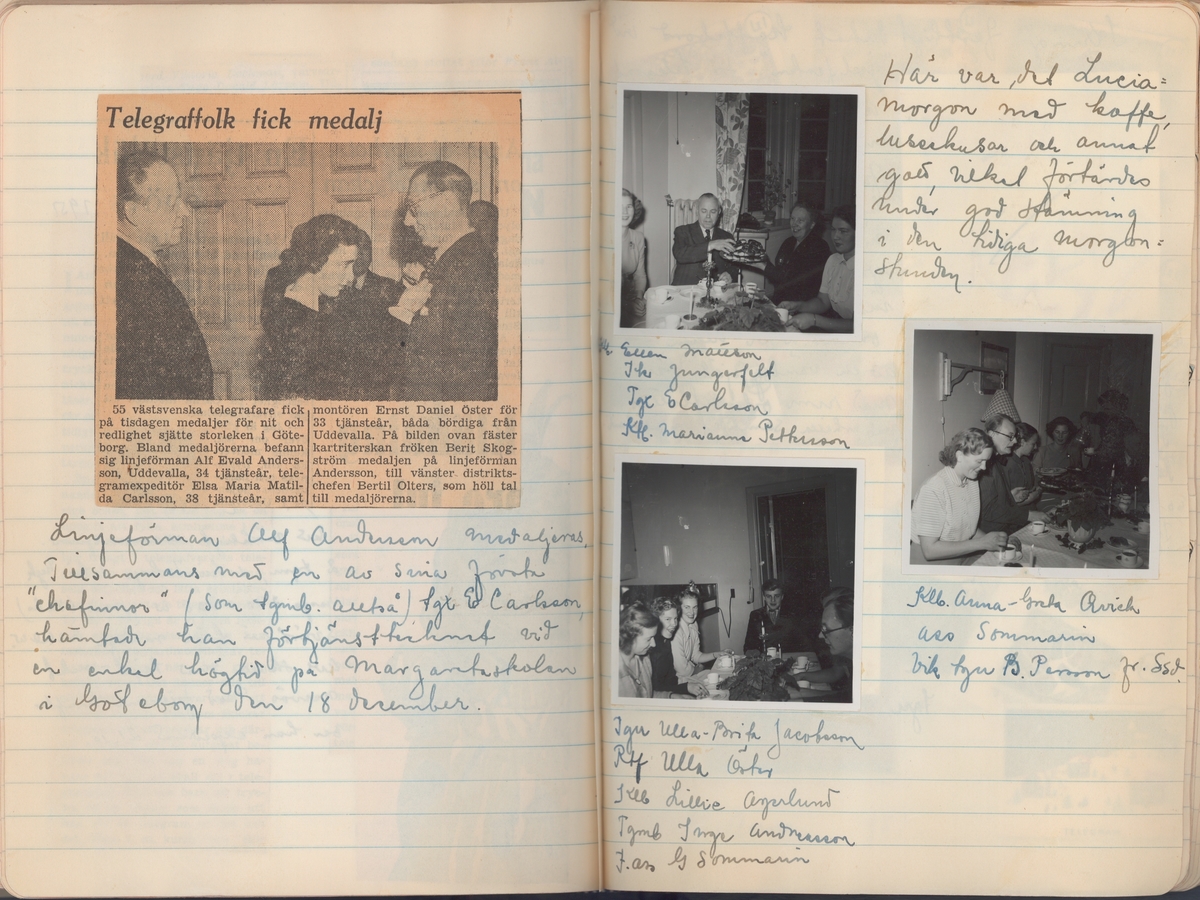 Telegraffolk fick medalj
55 västsvenska telegrafare fick
på tisdagen medaljer för nit och
redlighet sjätte storleken i Göte-
borg. Bland medaljörerna befann
sig linjeförman Alf Evald Anders-
son, Uddevalla, 34 tjänsteår, tele-
gramexpeditör Elsa Maria Matil-
da Carlsson, 38 tjänsteår, samt
montören Ernst Daniel Öster för
33 tjänsteår, båda bördiga från
Uddevalla. På bilden ovan fäster
kartriterskan fröken Berit Skog-
ström medaljen på linjeförman
Andersson, till vänster distrikts-
chefen Bertil Olters, som höll tal
till medaljörerna.
Linjeförman Alf Andersson medaljeras.
Tillsammans med en av sina första
"chefinnor" (som tgmb. alltså) Tgx E Carlsson,
hämtade han förtjänsttecknet vid
en enkel högtid på Margaretaskolan
i Göteborg den 18 december.
Här var det Lucia=
morgon med kaffe,
lussekusar och annat
gott, vilket förtärdes
under god stämning
i den tidiga morgon=
stunden.
Ellen
Ljungerfelt
E Carlsson
Marianne Pettersson
Klb. Anna-Greta
ass Sommarin
Vik tgn B. Persson fr. Ssd.
Tgn Ulla-Britt Jacobsson
Rtf Ulla Öster
Klb Lillie Agerlund
Tgmb Inge Andreasson
F.ass G Sommarin